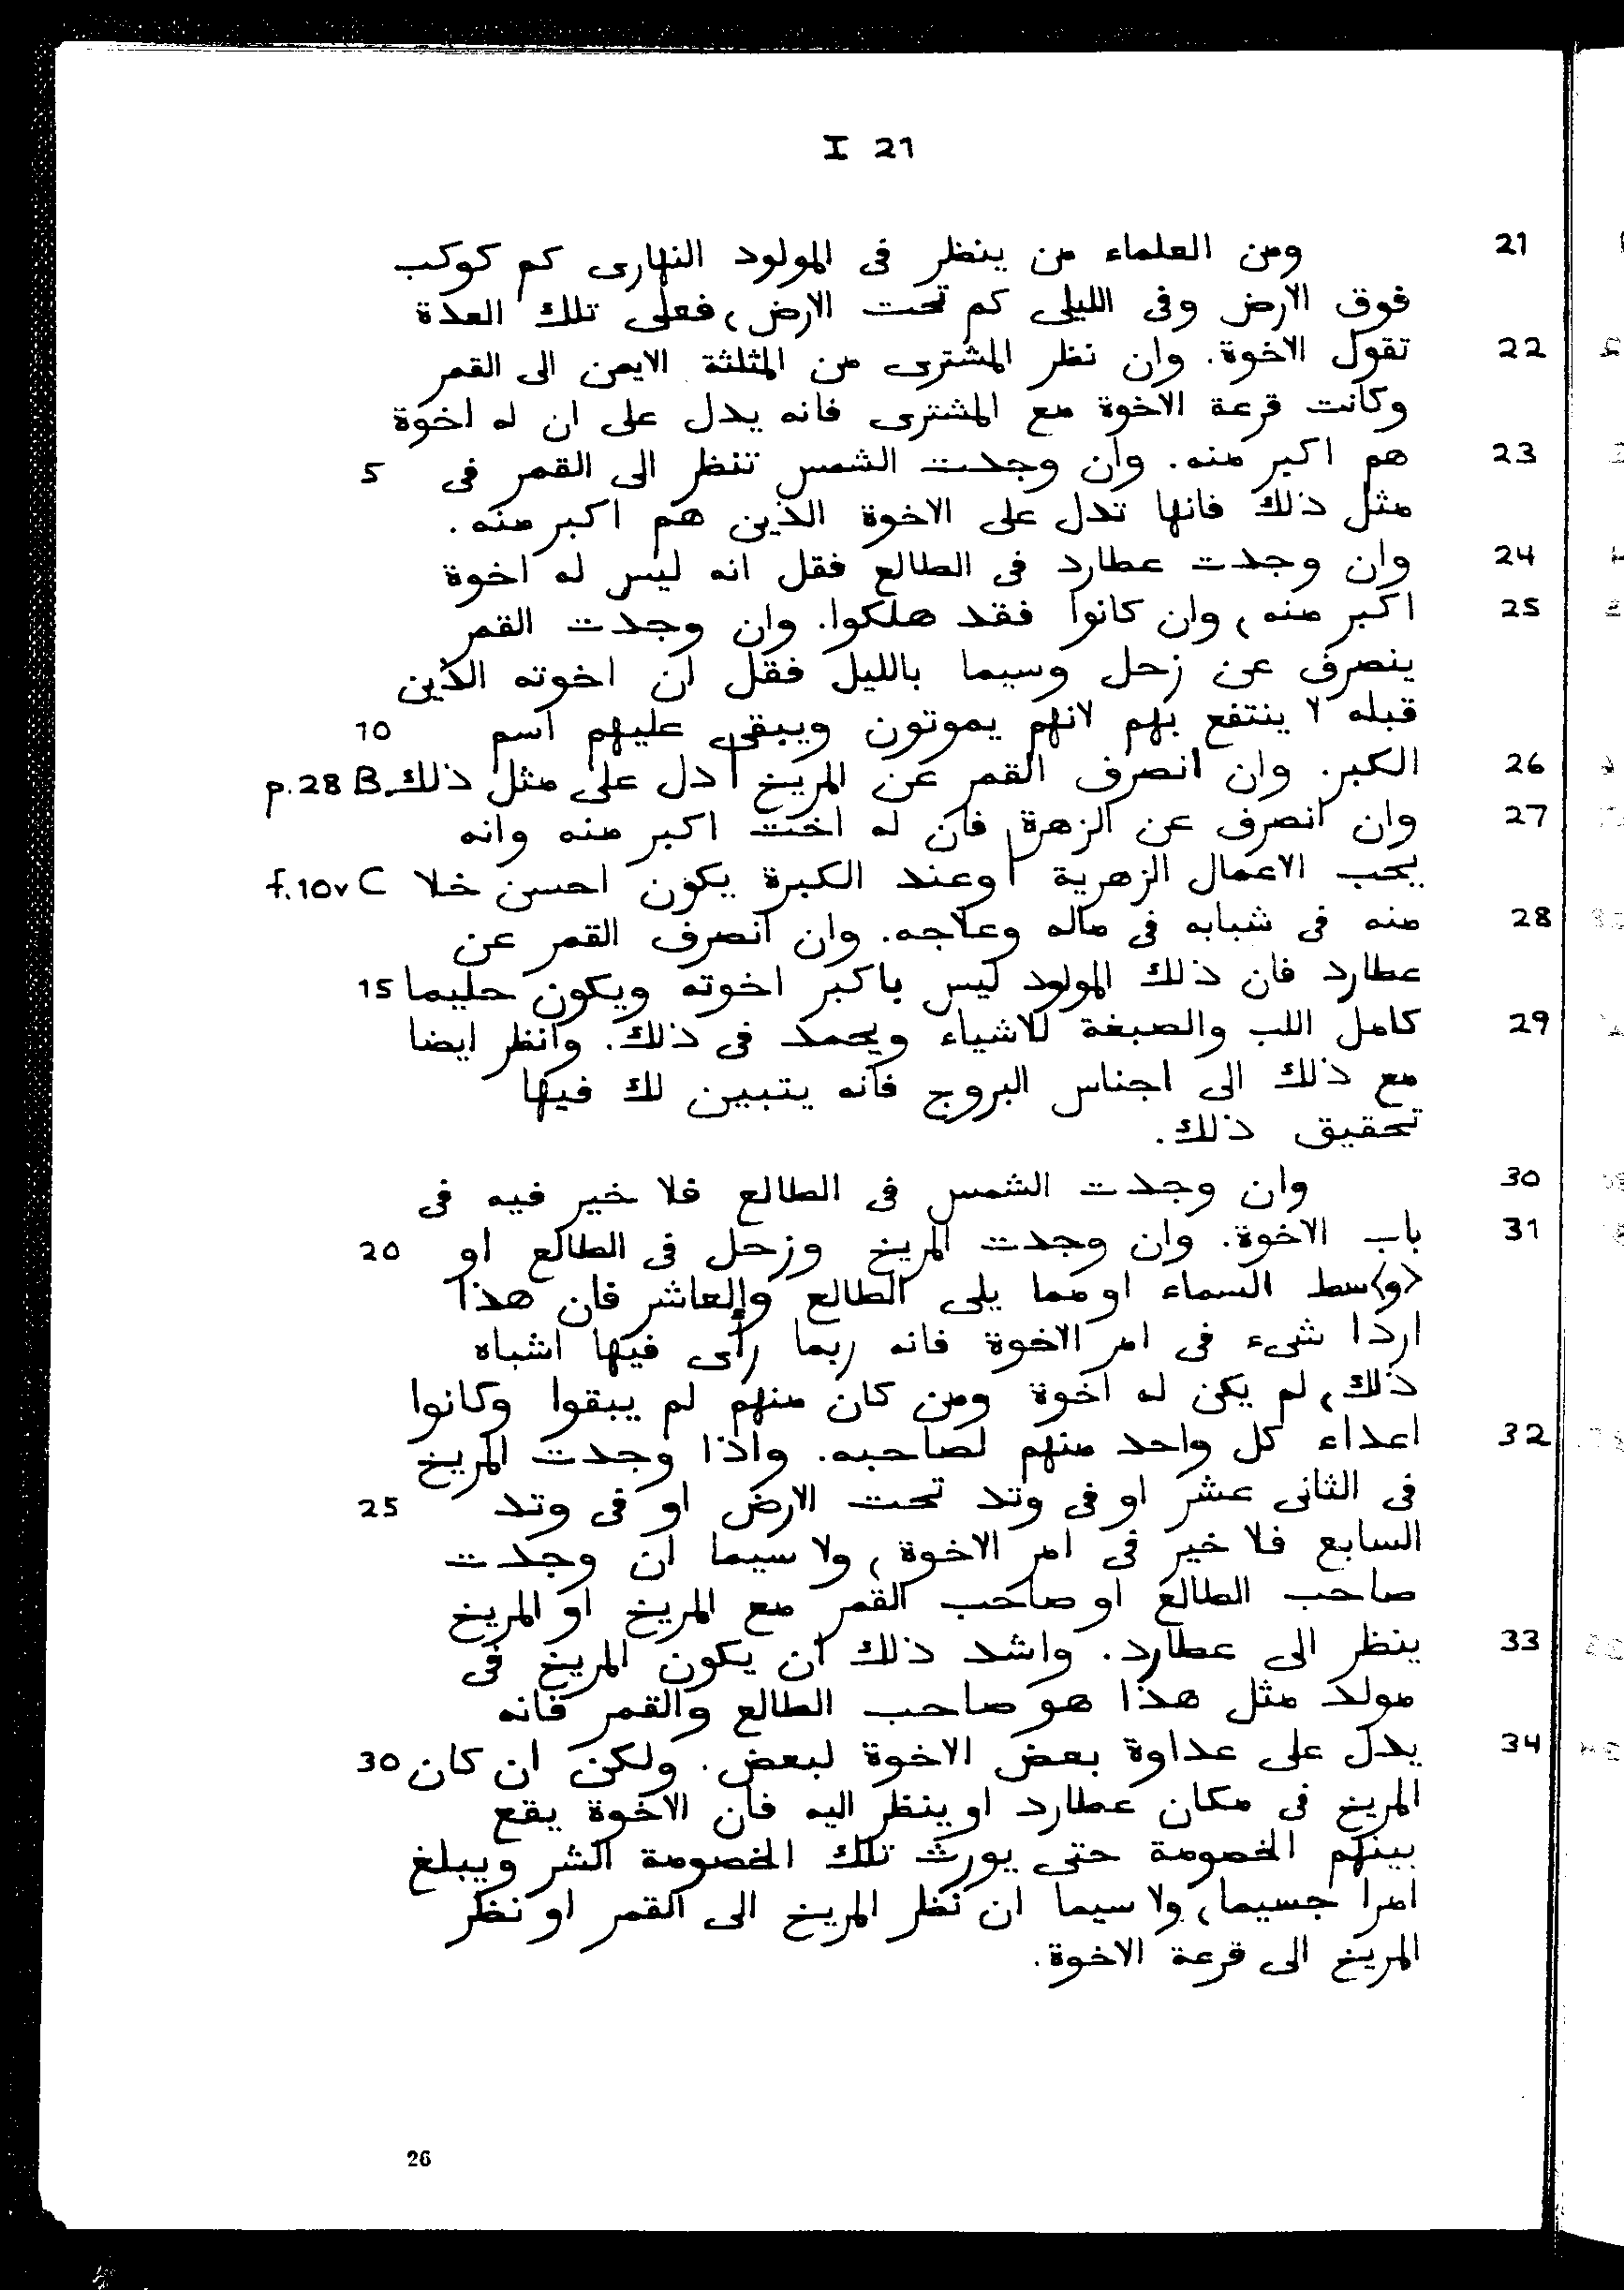 I 21
21 ومن العلماء من ينظر فى المولود النهارى كم كوكب
فوق الارض وفى الليلى كم تحت الارض، فعلى تلك العدة
22 تقول الاخوة. وان نظر المشترى من المثلثة الايمن الى القمر
وكانت قرعة الاخوة مع المشترى فانه يدل على ان له اخوة
23 هم اكبر منه. وان وجدت الشمس تنظر الى القمر فى 5
مثل ذلك فانها تدل على الاخوة الذين هم اكبر منه.
24 وان وجدت عطارد فى الطالع فقل انه ليس له اخوة
25 اكبر منه، وان كانوا فقد هلكوا. وان وجدت القمر
ينصرف عن زحل وسيما بالليل فقل ان اخوته الذين
قبله لا ينتفع بهم لانهم يموتون ويبقى عليهم اسم 10
26 الكبر. وان انصرف القمر عن المريخ | دل على مثل ذلك. p.28 B
27 وان انصرف عن الزهرة فان له اخت اكبر منه وانه
يحب الاعمال الزهرية | وعند الكبرة يكون احسن خلا f.10v C
28 منه فى شبابه فى ماله وعلاجه. وان انصرف القمر عن
عطارد فان ذلك المولود ليس باكبر اخوته ويكون حليما 15
29 كامل اللب والصبغة للاشياء ويحمد فى ذلك. وانظر ايضا
مع ذلك الى اجناس البروج فانه يتبين لك فيها
تحقيق ذلك.
30 وان وجدت الشمس فى الطالع فلا خير فيه فى
31 باب الاخوة. وان وجدت المريخ وزحل فى الطالع او 20
<و>سط السماء او مما يلى الطالع والعاشر فان هذا
اردا شىء فى امر الاخوة فانه ربما رأى فيها اشباه
ذلك، لم يكن له اخوة ومن كان منهم لم يبقوا وكانوا
32 اعداء كل واحد منهم لصاحبه. واذا وجدت المريخ
فى الثانى عشر او فى وتد تحت الارض او فى وتد 25
السابع فلا خير فى امر الاخوة، ولا سيما ان وجدت
صاحب الطالع او صاحب القمر مع المريخ او المريخ
33 ينظر الى عطارد. واشد ذلك ان يكون المريخ فى
مولد مثل هذا هو صاحب الطالع والقمر فانه
34 يدل على عداوة بعض الاخوة لبعض. ولكن ان كان 30
المريخ فى مكان عطارد او ينظر اليه فان الاخوة يقع
بينهم الخصومة حتى يورث تلك الخصومة الشر ويبلغ
امرا جسيما، ولا سيما ان نظر المريخ الى القمر او نظر
المريخ الى قرعة الاخوة.
26